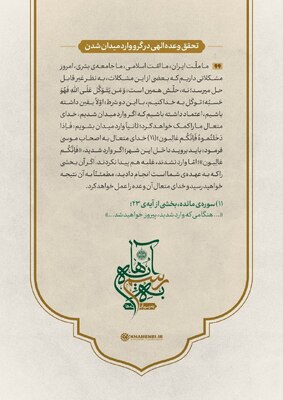 تحقق وعده‌الهی در گرو وارد میدان شدن
ما ملّت ایران، ما امّت اسلامی، ما جامعه‌ی بشری، امروز
مشکلاتی داریم که بعضی از این مشکلات، به نظر غیر قابل
حل میرسد؛ نه، حلّش همین است: وَمَن یَتَوَکَّل عَلَی اللهِ فَهُوَ
حَسبُه؛ توکّل به خدا کنیم، با این دو شرط: اوّلاً یقین داشته
باشیم، اعتماد داشته باشیم که اگر وارد میدان شدیم، خدای
متعال ما را کمک خواهد کرد؛ ثانیاً وارد میدان بشویم: فَاِذا
دَخَلتُموهُ فَاِنَّکُم غالِبون؛(۱) خدای متعال به اصحاب موسی
فرمود، باید بروید داخل این شهر؛ اگر وارد شدید، «فَاِنَّکُم
غالِبون»؛ امّا وارد نشدند، غلبه هم پیدا نکردند. اگر آن بخشی
را که به عهده‌ی شما است انجام دادید، مطمئنّاً به آن نتیجه
خواهید رسید و خدای متعال آن وعده را عمل خواهد کرد.
۱) سوره‌ی مائده، بخشی از آیه‌ی ۲۳؛
«... هنگامی که وارد شدید، پیروز خواهید شد. ...»
KHAMENEI.IR